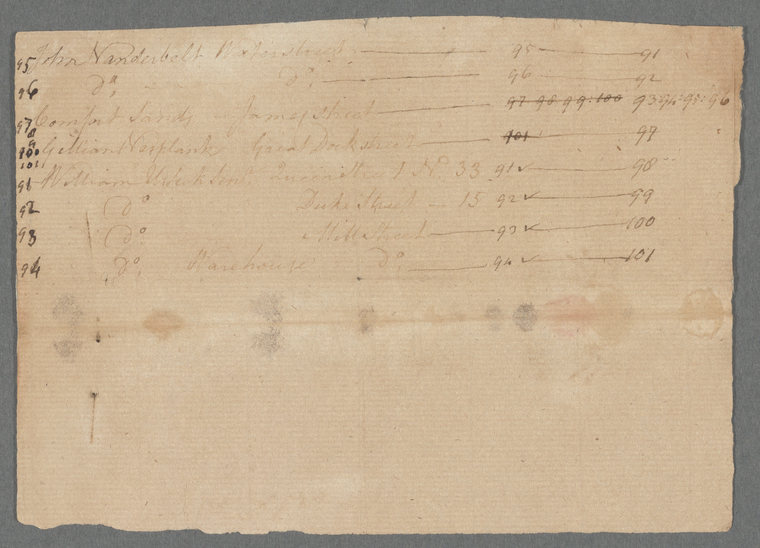 95 John Vanderbelt Water street 95 91
96 Do Do 96 92
97 Comfort Sands James Street 97 98 99 100 93 94 95 96
8
9
100 Gillian Verplank Great Dock street 101 97
101
91 William Street No 33 91 98
92 Do Duke Street 15 92 99
93 Do Mill Street 93 100
94 Do Warehouse Do 94 101